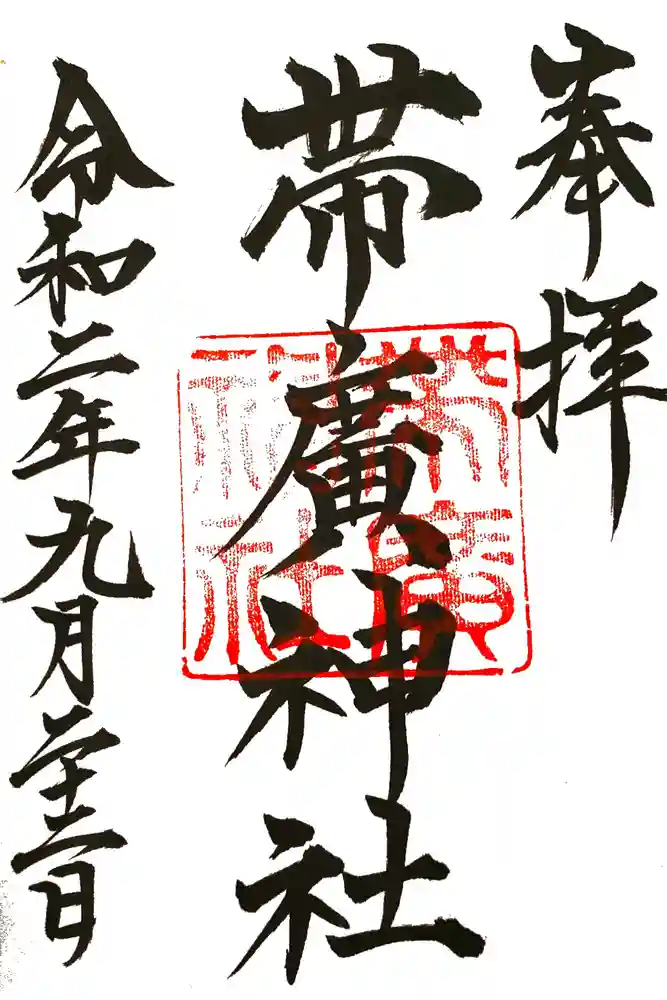 奉拝
帯廣神社
令和二年九月二十二日
帯廣
神社